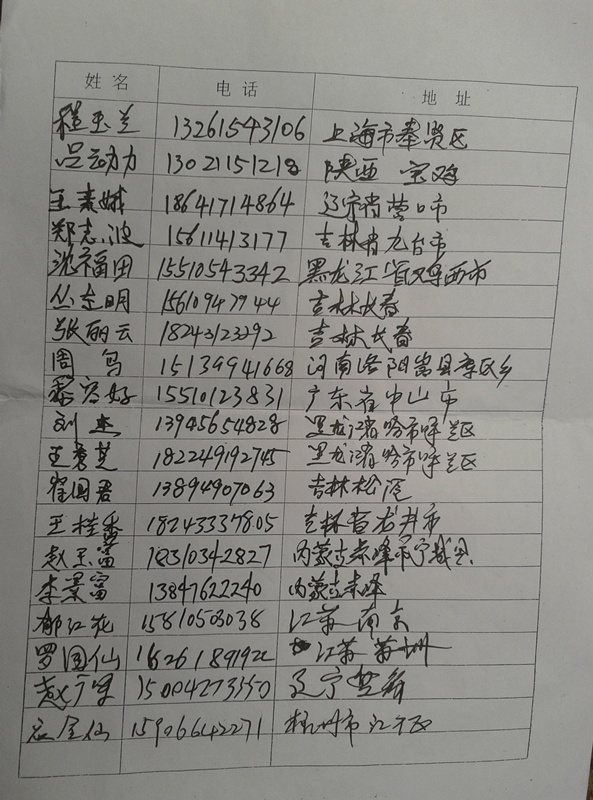 姓名 电话 地址
程玉兰 13261543106 上海市奉贤区
吕动力 13021151218 陕西 宝鸡
王素娥 18641714864 辽宁省营口市
郑志波 15611413177 吉林省九台市
沈福田 15510543342 黑龙江省鸡西市
丛志明 15610947944 吉林长春
张丽云 18243123292 吉林长春
周鸟 15139941668 河南洛阳嵩县库区乡
黎容好 15510123831 广东省中山市
刘杰 13945654828 黑龙江省哈市呼兰区
王秀芝 18224919 2745 黑龙江省哈市呼兰区
崔国君 13894907063 吉林松原
王桂香 18243337805 吉林省龙井市
赵玉富 18310342827 内蒙古赤峰市宁城县
李景富 13847622240 内蒙古赤峰
郁江花 15810503038 江苏南京
罗国仙 江苏 苏州
赵 15004273550 辽宁盘锦
应金仙 15906642271 杭州市江干区